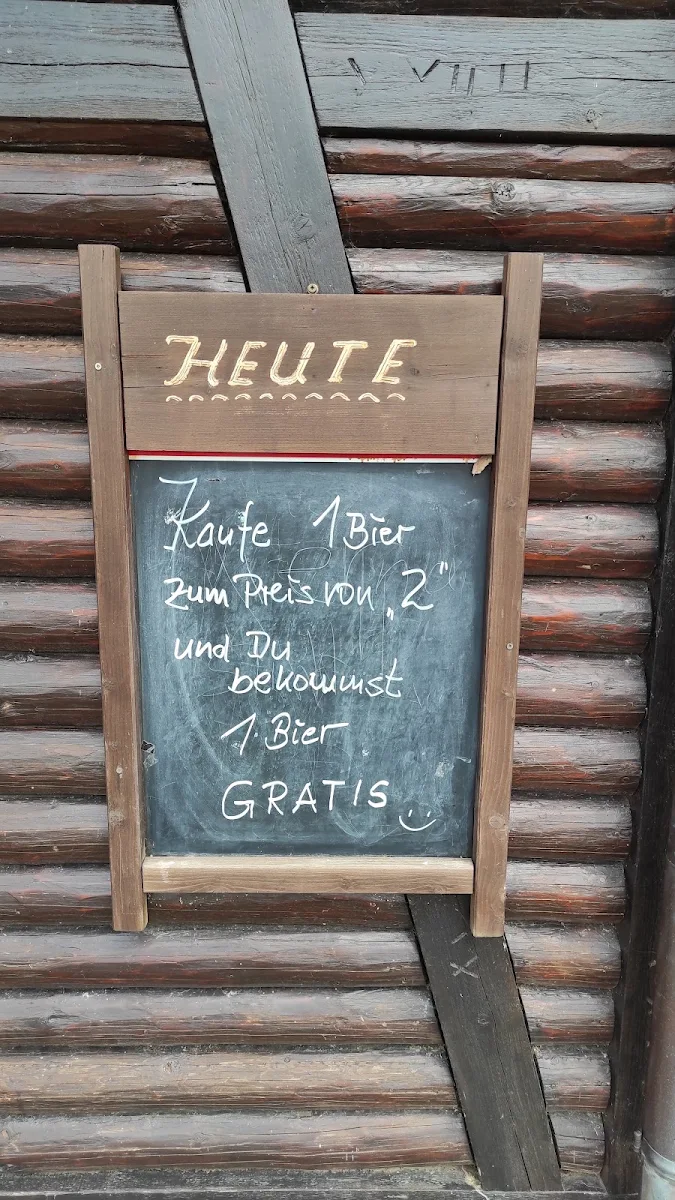 V VIIII
HEUTE
Kaufe 1 Bier
zum Preis von „2"
und Du
bekommst
1 Bier
GRATIS